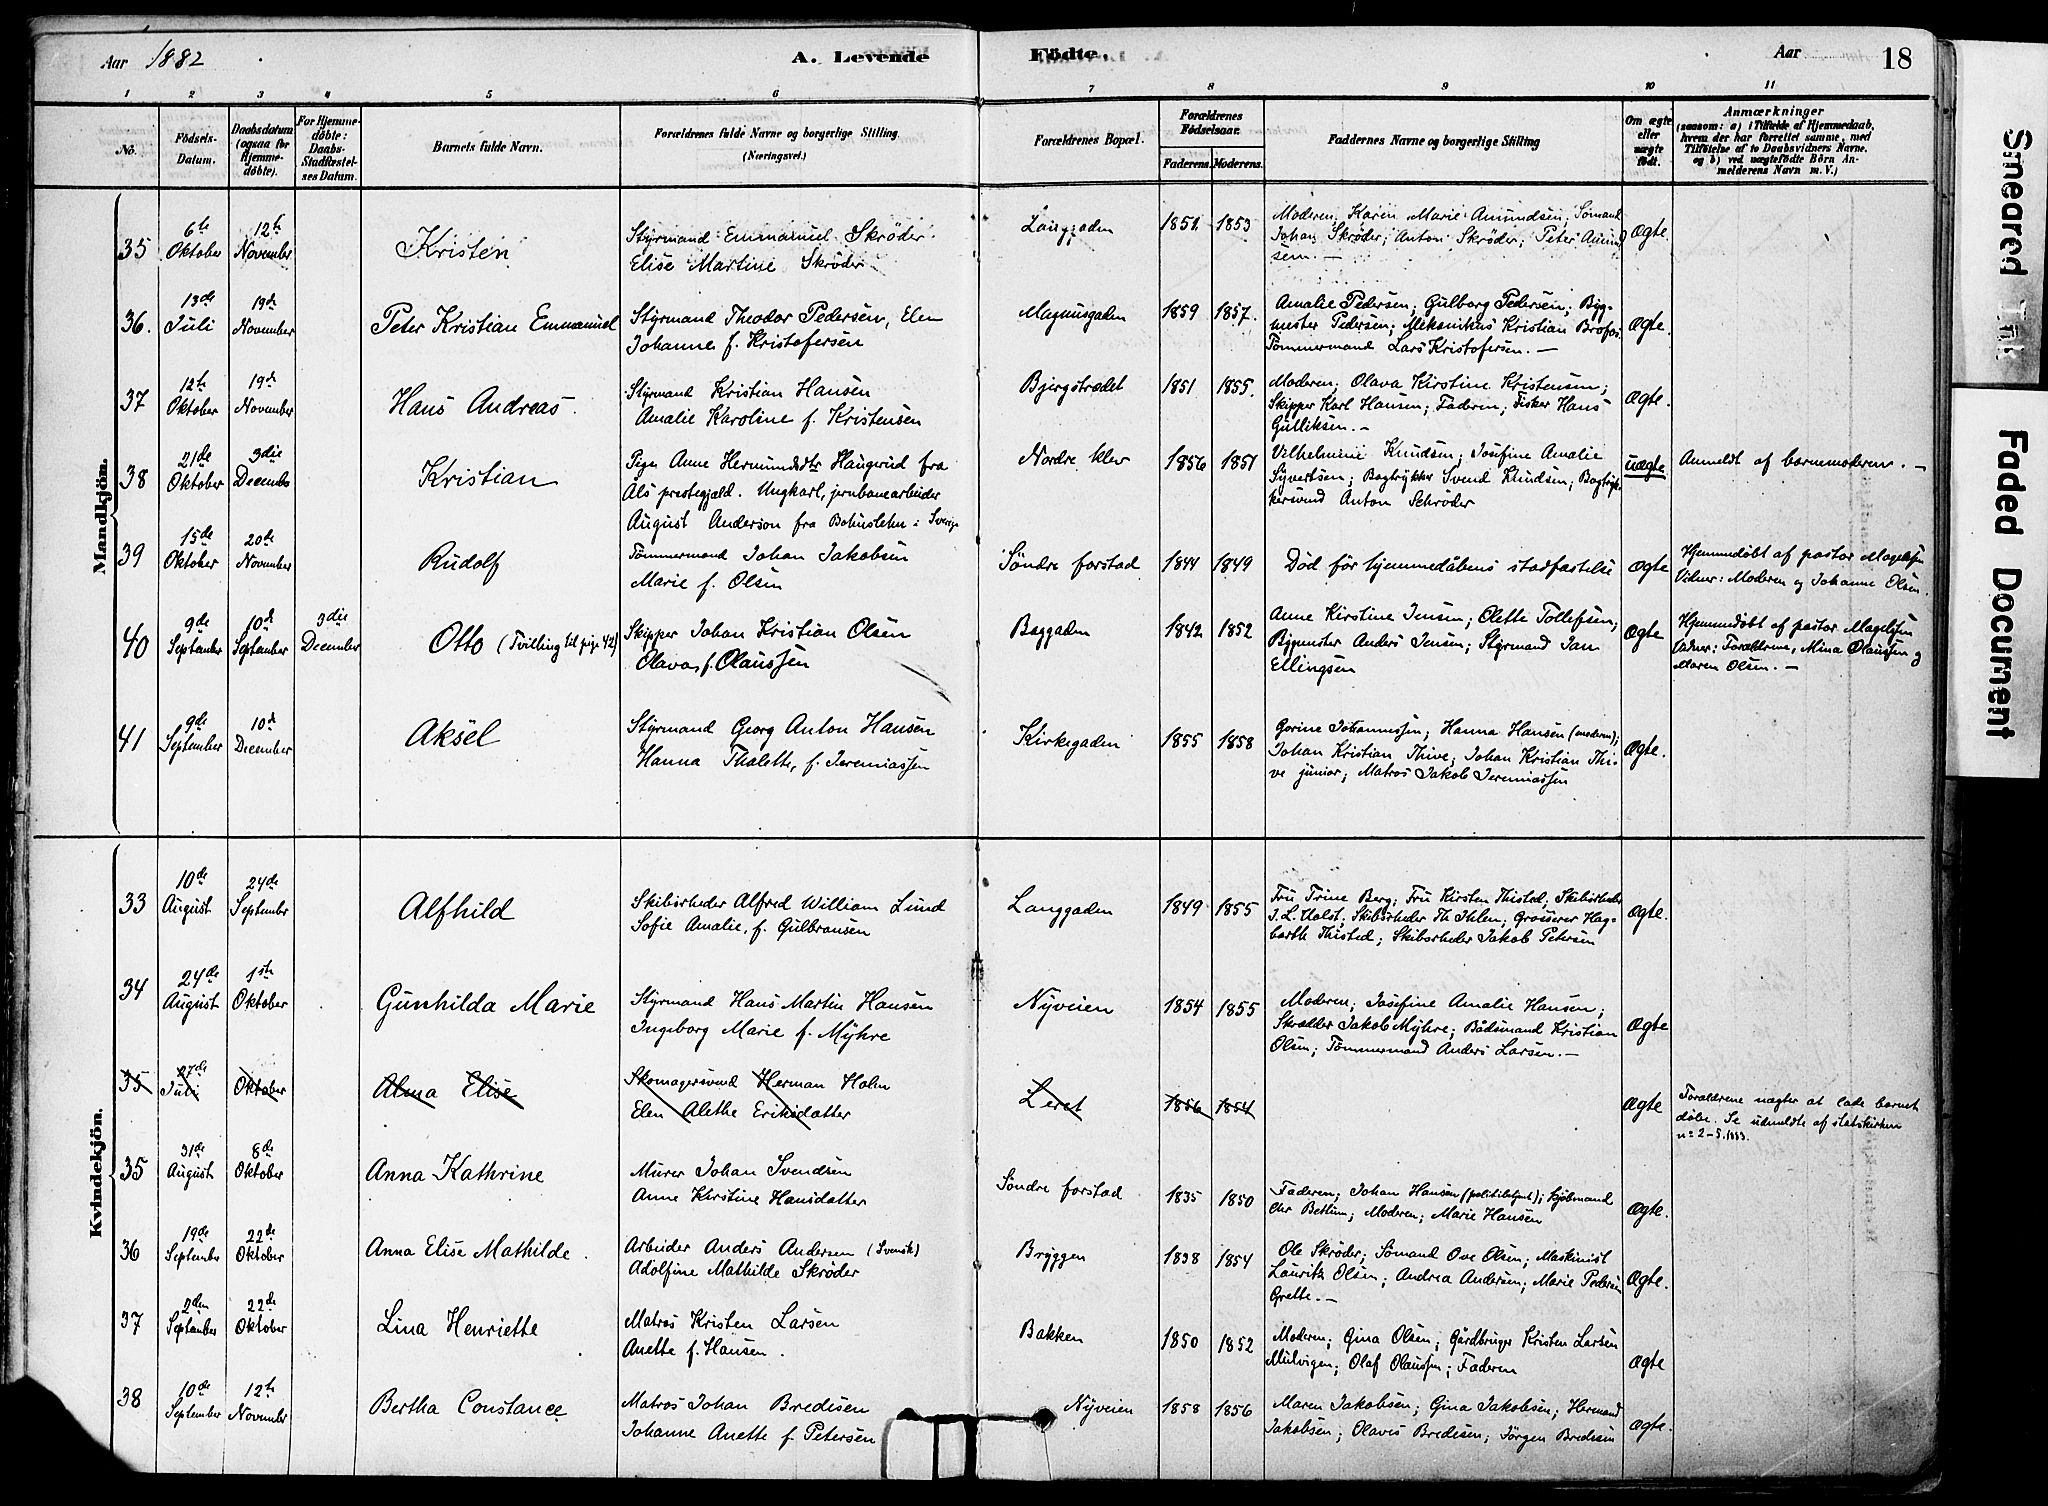 Aar 1882
A. Levende
Födte.
Aar
18
1 2 3 4 5 6 7 8 9 10 11
No.
Födsels-
Datum.
Daabsdatum
(ogsaa for
Hjemme-
döbte).
For Hjemme-
döbte:
Daabs-
Stadfæstel-
ses Datum.
Barnets fulde Navn.
Forældrenes fulde Navne og borgerlige Stilling.
(Næringsvei.)
Forældrenes Bopæl.
Forældrenes
Födselsaar.
Faderens. Moderens.
Faddernes Navne og borgerlige Stilling
Om ægte
eller
uægte
födt.
Anmærkninger
(saasom: a) i Tilfælde af Hjemmedaab,
hvem der har forrettet samme, med
Tilföielse af to Daabsvidners Navne,
og b) ved uægtefödte Börn An-
melderens Navn m. V.)
Mandkjön.
35
6te
Oktober
12te
November
Kristen
Styrmand Emmanuel Skrøder
Elise Martine Skrøder
Langgaden
1851. 1853
Moderen; Karin Marie Amundsen; Sømand
Johan Skrøder; Anton Skrøder; Peter Amund
sen. —
Ægte.
36.
13de
Juli
19de
November
Peter Kristian Emmanuel
Styrmand Theodor Pedersen, Elen
Johanne f. Kristofersen
Magnusgaden
1859 1857.
Amalie Pedersen; Gulborg Pedersen; Byg-
mester Pedersen; Mekanikus Kristian Brofos
Tømmermand Lars Kristofersen. —
Ægte.
37
12te
Oktober
19de
November
Hans Andreas.
Styrmand Kristian Hansen
Amalie Karoline f. Kristensen
Bjergstrædet
1851 1855.
Moderen; Olava Kirstine Kristensen;
Skipper Karl Hansen; Faderen; Fisker Hans
Gulliksen. —
Ægte.
38
21de
Oktober
3die
Decembr
Kristian
Pige Anne Hermundsdtr Haugerud fra
Áls prestegjæld. Ungkarl, jernbanearbeider
August Anderson fra Bohuslehn i Sverige
Nordre klev
1856 1851
Vilhelmine Knudsen; Josefine Amalie
Syvertsen; Bogtrykker Svend Knudsen; Bogtryk-
kersvend Anton Schrøder
uægte
Anmeldt af barnemoderen. —
39
15de
Oktober
20de
November
Rudolf
Tømmermand Johan Jakobsen
Marie f. Olsen
Søndre forstad
1844 1849
Død før hjemmedåbens stadfæstelse
Ægte
Hjemmedøbt af pastor Magelssen
Vidner: Moderen og Johanne Olsen.
40
9de
September
10de
September
3die
December
Otto (Tvilling til pige 42)
Skipper Johan Kristian Olsen
Olava, f. Olaussen
Baggaden
1842 1852
Anne Kirstine Jensen; Olette Tollefsen;
Bygmester Anders Jensen; Styrmand Jan
Ellingsen
Ægte
Hjemmedøbt af pastor Magelssen
Vidner: Forældrene, Mina Olaussen og
Maren Olsen. —
41
9de
September
10de
December
Aksel
Styrmand Georg Anton Hansen
Hanna Thalette, f. Jeremiassen
Kirkegaden
1855 1858
Gorine Johannessen; Hanna Hansen (moderen);
Johan Kristian Thive; Johan Kristian Thi-
ve junior; Matros Jakob Jeremiassen
Ægte.
Kvindekjön.
33
10de
August
24de
Septembr
Alfhild
Skibsrheder Alfred William Lund
Sofie Amalie, f. Gulbransen
Langgaden
1849 1855
Fru Trine Berg; Fru Kirsten Thisted, Skibsrheder
J. L. Holst; Skibsrheder Th Ihlen; Grosserer Hag-
barth Thisted; Skibsrheder Jakob Petersen
Ægte.
34
24de
August
1ste
Oktober
Gunhilda Marie
Styrmand Hans Martin Hansen
Ingeborg Marie f. Myhre
Nyveien
1854 1855
Moderen; Josefine Amalie Hansen;
Skrædder Jakob Myhre; Bådsmand Kristian
Olsen; Tømmermand Anders Larsen. —
Ægte
35
27de
Juli
Oktober
Alma Elise
Skomagersvend Herman Holm
Elen Alethe Eriksdatter
Leret
1856 1854
Ægte
Forældrene nægter at lade barnet
døbe. Se udmeldte af statskirken
no 2-5. 1883.
35
31de
August
8de
Oktober
Anna Kathrine
Murer Johan Svendsen
Anne Kirstine Hansdatter
Søndre forstad
1835 1850
Faderen; Johan Hansen (politibetjent); kjøbmand
Chr Bettum; Moderen; Marie Hansen
Ægte.
36
19de
Septembr
22de
Oktober
Anna Elise Mathilde.
Arbeider Anders Andersen (Svensk)
Adolfine Mathilde Skrøder
Bryggen
1838 1854
Ole Skrøder; Sømand Ove Olsen; Maskinist
Lauritz Olsen; Andrea Andersen; Marie Pedersen
Grette. —
Ægte.
37
2den
September
22de
Oktober
Lina Henriette
Matros Kristen Larsen
Anette f. Hansen.
Bakken
1850 1852
Moderen; Gina Olsen; Gårdbruger Kristen Larsen
Mulvigen; Olaf Olaussen; Faderen
Ægte
38
10de
September
12te
November
Bertha Constance
Matros Johan Bredesen
Johanne Anette f. Petersen
Nyveien
1858 1856
Maren Jakobsen; Gina Jakobsen; Herman
Jakobsen; Olavis Bredesen; Jørgen Bredesen
Ægte.
Smeared Ink
Faded Document